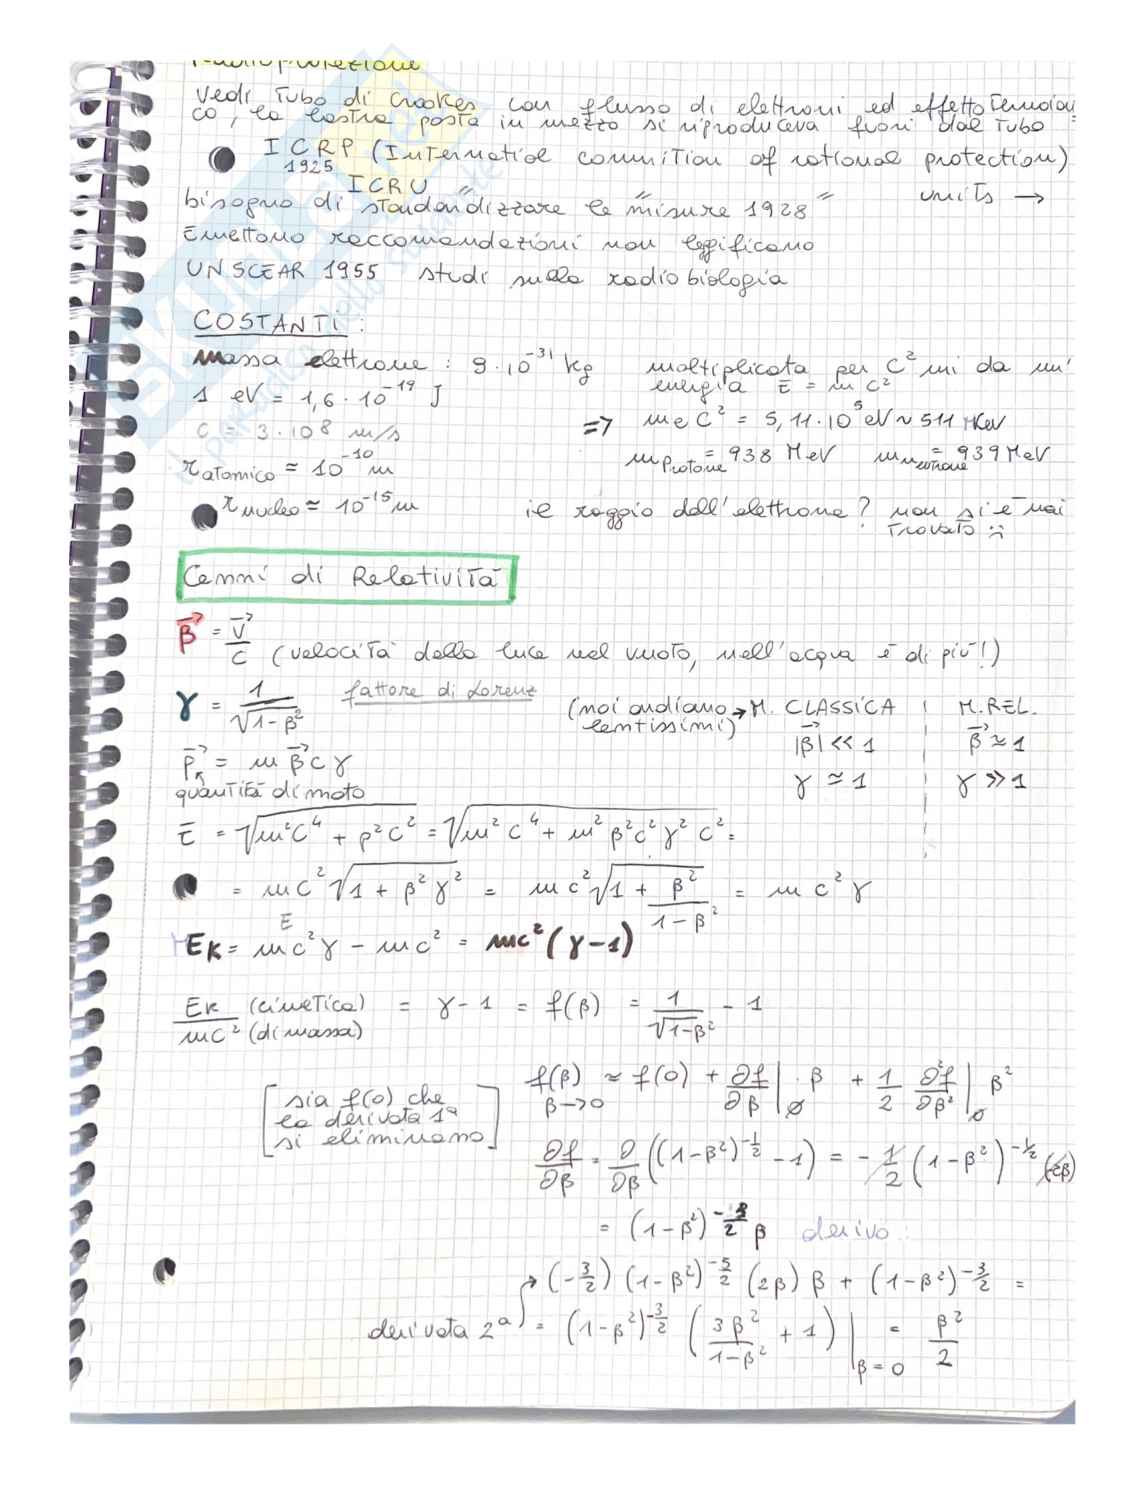 Radioprotezione
Vedi Tubo di Crookes con flusso di elettroni ed effetto Termoion
co, la lastra posta in mezzo si riproduceva fuori dal Tubo
ICRP (Internatiol commition of rational protection)
1925
ICRU " " " units →
bisogno di standardizzare le misure 1928
Emettono raccomandazioni non legificano
UNSCEAR 1955 studi sulla radiobiologia
COSTANTI:
Massa elettrone : 9·10⁻³¹ kg moltiplicata per C² mi da un'
energia E = mc²
1 eV = 1,6·10⁻¹⁹ J
C = 3·10⁸ m/s => me C² = 5,11·10⁵ eV ~ 511 KeV
r atomico ≃ 10⁻¹⁰ m m Protone = 938 MeV m neutrone = 939 MeV
r nucleo ≃ 10⁻¹⁵ m il raggio dell'elettrone? non si è mai
Trovato :(
Cenni di Relatività
β⃗ = v⃗/c (velocità della luce nel vuoto, nell'acqua è di più!)
γ = 1/√(1-β²) fattore di Lorenz (noi andiamo lentissimi) → M. CLASSICA | M.REL.
|β⃗| << 1 | β⃗ ≃ 1
P⃗ = m β⃗ c γ γ ≃ 1 | γ >> 1
quantità di moto
E = √(m²C⁴ + p²C²) = √(m²C⁴ + m²β²c²γ²C²) =
= mC²√(1 + β²γ²) = mc²√(1 + β²/(1-β²)) = mc²γ
E
EK = mc²γ - mc² = mc²(γ-1)
EK (cinetica)/mC² (di massa) = γ-1 = f(β) = 1/√(1-β²) - 1
f(β) ≃ f(0) + ∂f/∂β|∅ · β + 1/2 ∂²f/∂β²|∅ β²
β→0
[sia f(0) che
la derivata 1ª
si eliminano]
∂f/∂β = ∂/∂β((1-β²)^-1/2 - 1) = -1/2 (1-β²)^-1/2 (-2β)
= (1-β²)^-3/2 β derivo:
→ (-3/2) (1-β²)^-5/2 (2β) β + (1-β²)^-3/2 =
derivata 2ª = (1-β²)^-3/2 (3β²/(1-β²) + 1)|β=0 = β²/2